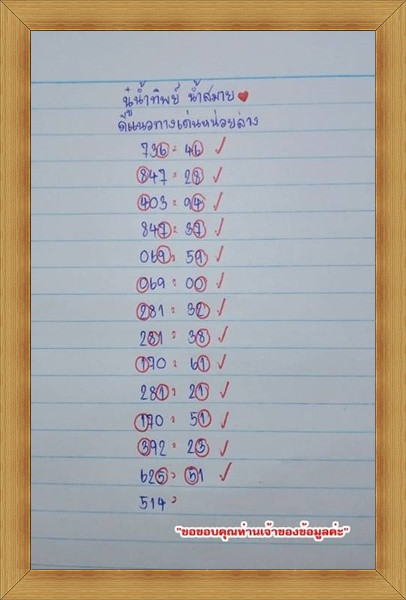 นู๋น้ำทิพย์ น้ำสมาย
ดูแนวทางเด่นหน่วยล่าง
736 = 46 ✓
847 = 28 ✓
403 = 94 ✓
847 = 37 ✓
069 = 59 ✓
069 = 00 ✓
281 = 32 ✓
281 = 38 ✓
170 = 61 ✓
281 = 21 ✓
170 = 51 ✓
392 = 23 ✓
625 = 51 ✓
514 =
"ขอขอบคุณท่านเจ้าของข้อมูลค่ะ"